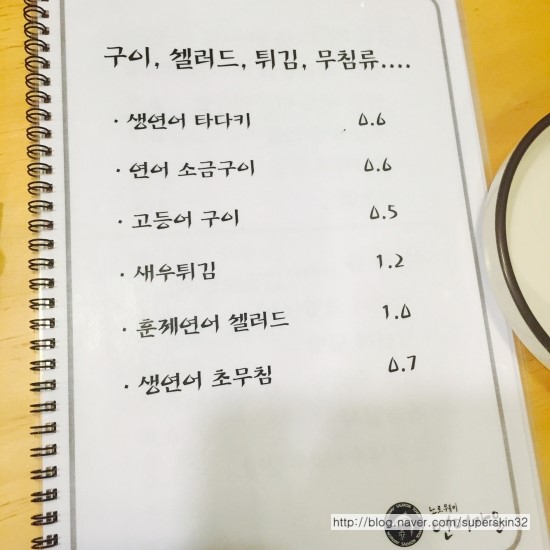 구이, 셀러드, 튀김, 무침류....
· 생연어 타다키 0.6
· 연어 소금구이 0.6
· 고등어 구이 0.5
· 새우튀김 1.2
· 훈제연어 셀러드 1.0
· 생연어 초무침 0.7
노르웨이
http://blog.naver.com/superskin32